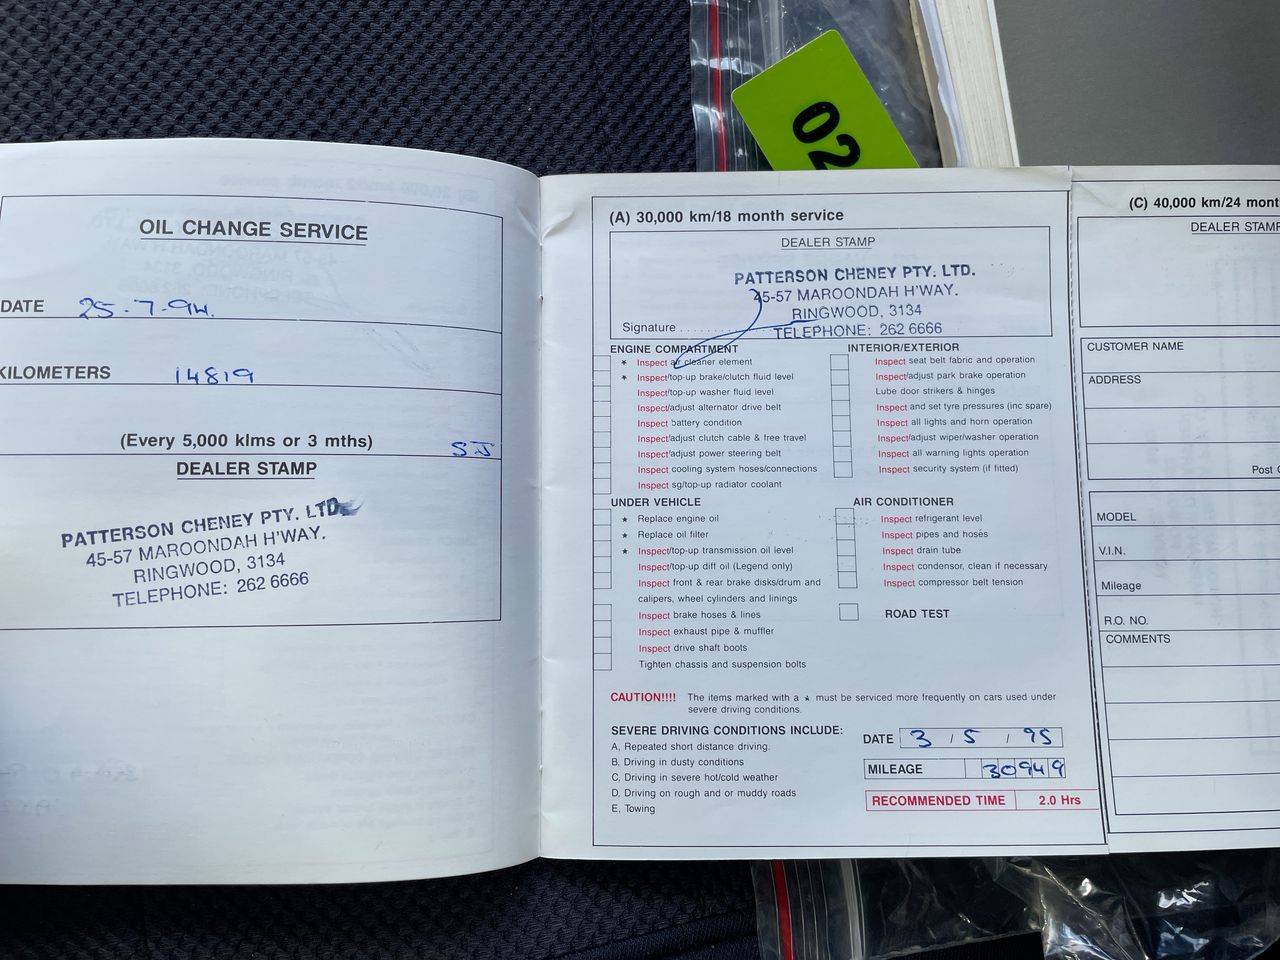 02
OIL CHANGE SERVICE
DATE 25.7.94.
KILOMETERS 14819
(Every 5,000 klms or 3 mths) SJ
DEALER STAMP
PATTERSON CHENEY PTY. LTD.
45-57 MAROONDAH H'WAY.
RINGWOOD, 3134
TELEPHONE: 262 6666
(A) 30,000 km/18 month service
DEALER STAMP
PATTERSON CHENEY PTY. LTD.
45-57 MAROONDAH H'WAY.
RINGWOOD, 3134
TELEPHONE: 262 6666
Signature
ENGINE COMPARTMENT
★ Inspect air cleaner element
★ Inspect/top-up brake/clutch fluid level
Inspect/top-up washer fluid level
Inspect/adjust alternator drive belt
Inspect battery condition
Inspect/adjust clutch cable & free travel
Inspect/adjust power steering belt
Inspect cooling system hoses/connections
Inspect sg/top-up radiator coolant
UNDER VEHICLE
★ Replace engine oil
★ Replace oil filter
★ Inspect/top-up transmission oil level
Inspect/top-up diff oil (Legend only)
Inspect front & rear brake disks/drum and
calipers, wheel cylinders and linings
Inspect brake hoses & lines
Inspect exhaust pipe & muffler
Inspect drive shaft boots
Tighten chassis and suspension bolts
INTERIOR/EXTERIOR
Inspect seat belt fabric and operation
Inspect/adjust park brake operation
Lube door strikers & hinges
Inspect and set tyre pressures (inc spare)
Inspect all lights and horn operation
Inspect/adjust wiper/washer operation
Inspect all warning lights operation
Inspect security system (if fitted)
AIR CONDITIONER
Inspect refrigerant level
Inspect pipes and hoses
Inspect drain tube
Inspect condensor, clean if necessary
Inspect compressor belt tension
ROAD TEST
CAUTION!!!! The items marked with a ★ must be serviced more frequently on cars used under
severe driving conditions.
SEVERE DRIVING CONDITIONS INCLUDE:
A, Repeated short distance driving.
B, Driving in dusty conditions
C, Driving in severe hot/cold weather
D, Driving on rough and or muddy roads
E, Towing
DATE 3 / 5 / 95
MILEAGE 30949
RECOMMENDED TIME 2.0 Hrs
(C) 40,000 km/24 mont
DEALER STAMP
CUSTOMER NAME
ADDRESS
Post
MODEL
V.I.N.
Mileage
R.O. NO.
COMMENTS